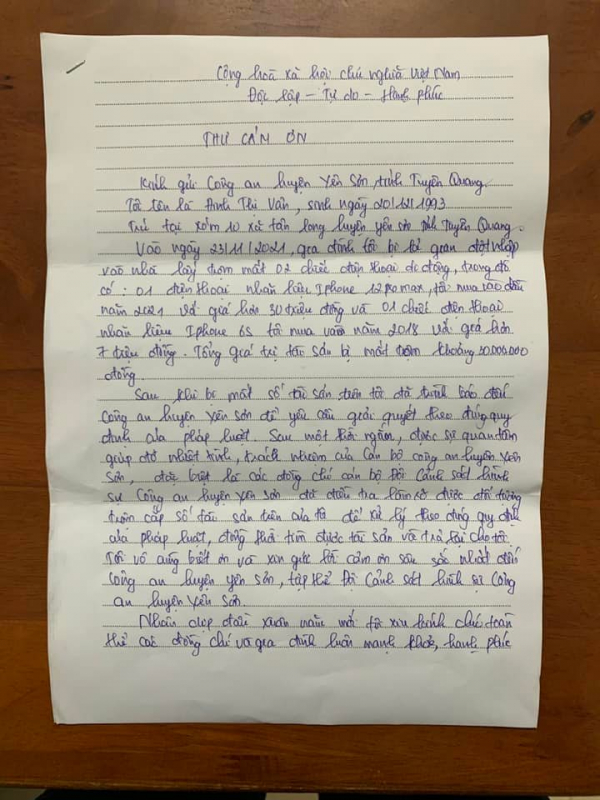 Cộng hoà xã hội chủ nghĩa Việt Nam
Độc lập - Tự do - Hạnh phúc
THƯ CẢM ƠN
Kính gửi Công an huyện Yên Sơn, tỉnh Tuyên Quang.
Tôi tên là Đinh Thị Vân, sinh ngày 20/12/1993
Trú tại xóm 10 xã tân long huyện yên sơn tỉnh Tuyên Quang.
Vào ngày 23/11/2021, gia đình tôi bị kẻ gian đột nhập
vào nhà lấy trộm mất 02 chiếc điện thoại di động, trong đó
có: 01 điện thoại nhãn hiệu Iphone 12 pro max, tôi mua vào đầu
năm 2021 với giá hơn 30 triệu đồng và 01 chiếc điện thoại
nhãn hiệu Iphone 6s tôi mua vào năm 2018 với giá hơn
7 triệu đồng. Tổng giá trị tài sản bị mất trộm khoảng
đồng.
Sau khi bị mất số tài sản trên tôi đã trình báo đến
Công an huyện Yên Sơn để yêu cầu giải quyết theo đúng quy
định của pháp luật. Sau một thời ngắn, được sự quan tâm
giúp đỡ nhiệt tình, trách nhiệm của cán bộ công an huyện Yên
Sơn, đặc biệt là các đồng chí cán bộ Đội Cảnh sát hình
sự Công an huyện yên sơn đã điều tra làm rõ được đối tượng
trộm cắp số tài sản trên của tôi để xử lý theo đúng quy định
của pháp luật, đồng thời tìm được tài sản và trả lại cho tôi.
Tôi vô cùng biết ơn và xin gửi lời cảm ơn sâu sắc nhất đến
Công an huyện yên sơn, tập thể Đội Cảnh sát hình sự Công
an huyện Yên Sơn.
Nhân dịp đầu xuân năm mới tôi xin kính chúc toàn
thể các đồng chí và gia đình luôn mạnh khoẻ, hạnh phúc